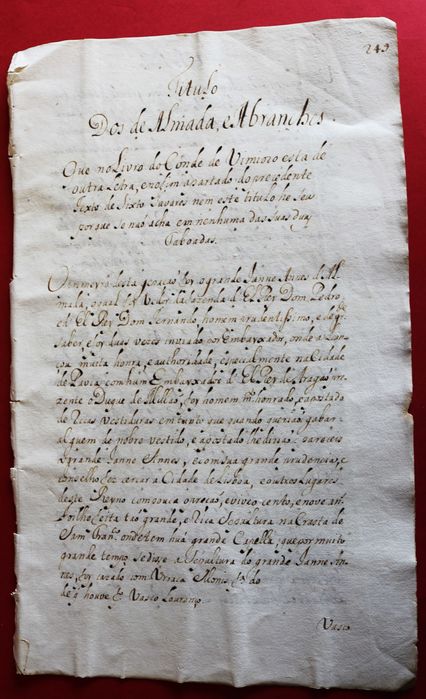 249
Titulo
Dos de Almada, e Abranches.
Que no Livro do Conde de Vimioso esta de
outra letra, e no fim apartado do precedente
Texto de Xisto Tavares nem este titulo he seu
porque se naõ acha em nenhuma das suas duas
Taboadas.
O primeyro desta geraçaõ foy o grande Janne Annes de Al
mada, o qual foy Védor da fazenda d' El Rey Dom Pedro,
e d' El Rey Dom Fernando, homem prudentissimo, e de
saber, e foy duas vezes inviado por Embaxador, onde
muita honra, e authoridade, especialmente na Cidade
de Pavia com hum Embaxador d' El Rey de Aragaõ pre
zente o Duque de Millaõ, foy homem m.to honrado, e apostado
de Ricas vestiduras em tanto que quando queriaõ gabar
alguem de nobre vestido, e apostado lhe diziaõ: pareceis
o grande Janne Annes, e com sua grande prudencia, e
conselho fez cercar a Cidade de Lisboa, e outros lugares
deste Reyno com pouca oppreçaõ, e viveo cento, e nove an
nos
grande, e Rica Sepultura na Crasta de
Sam Fran.co onde tem huã grande Capella, que por muito
grande tempo se disse a Sepultura do grande Janne An
nes, foy cazado com Urraca Moniz f.a do
de q̃ houve Vasco Lourenço.
Vasco